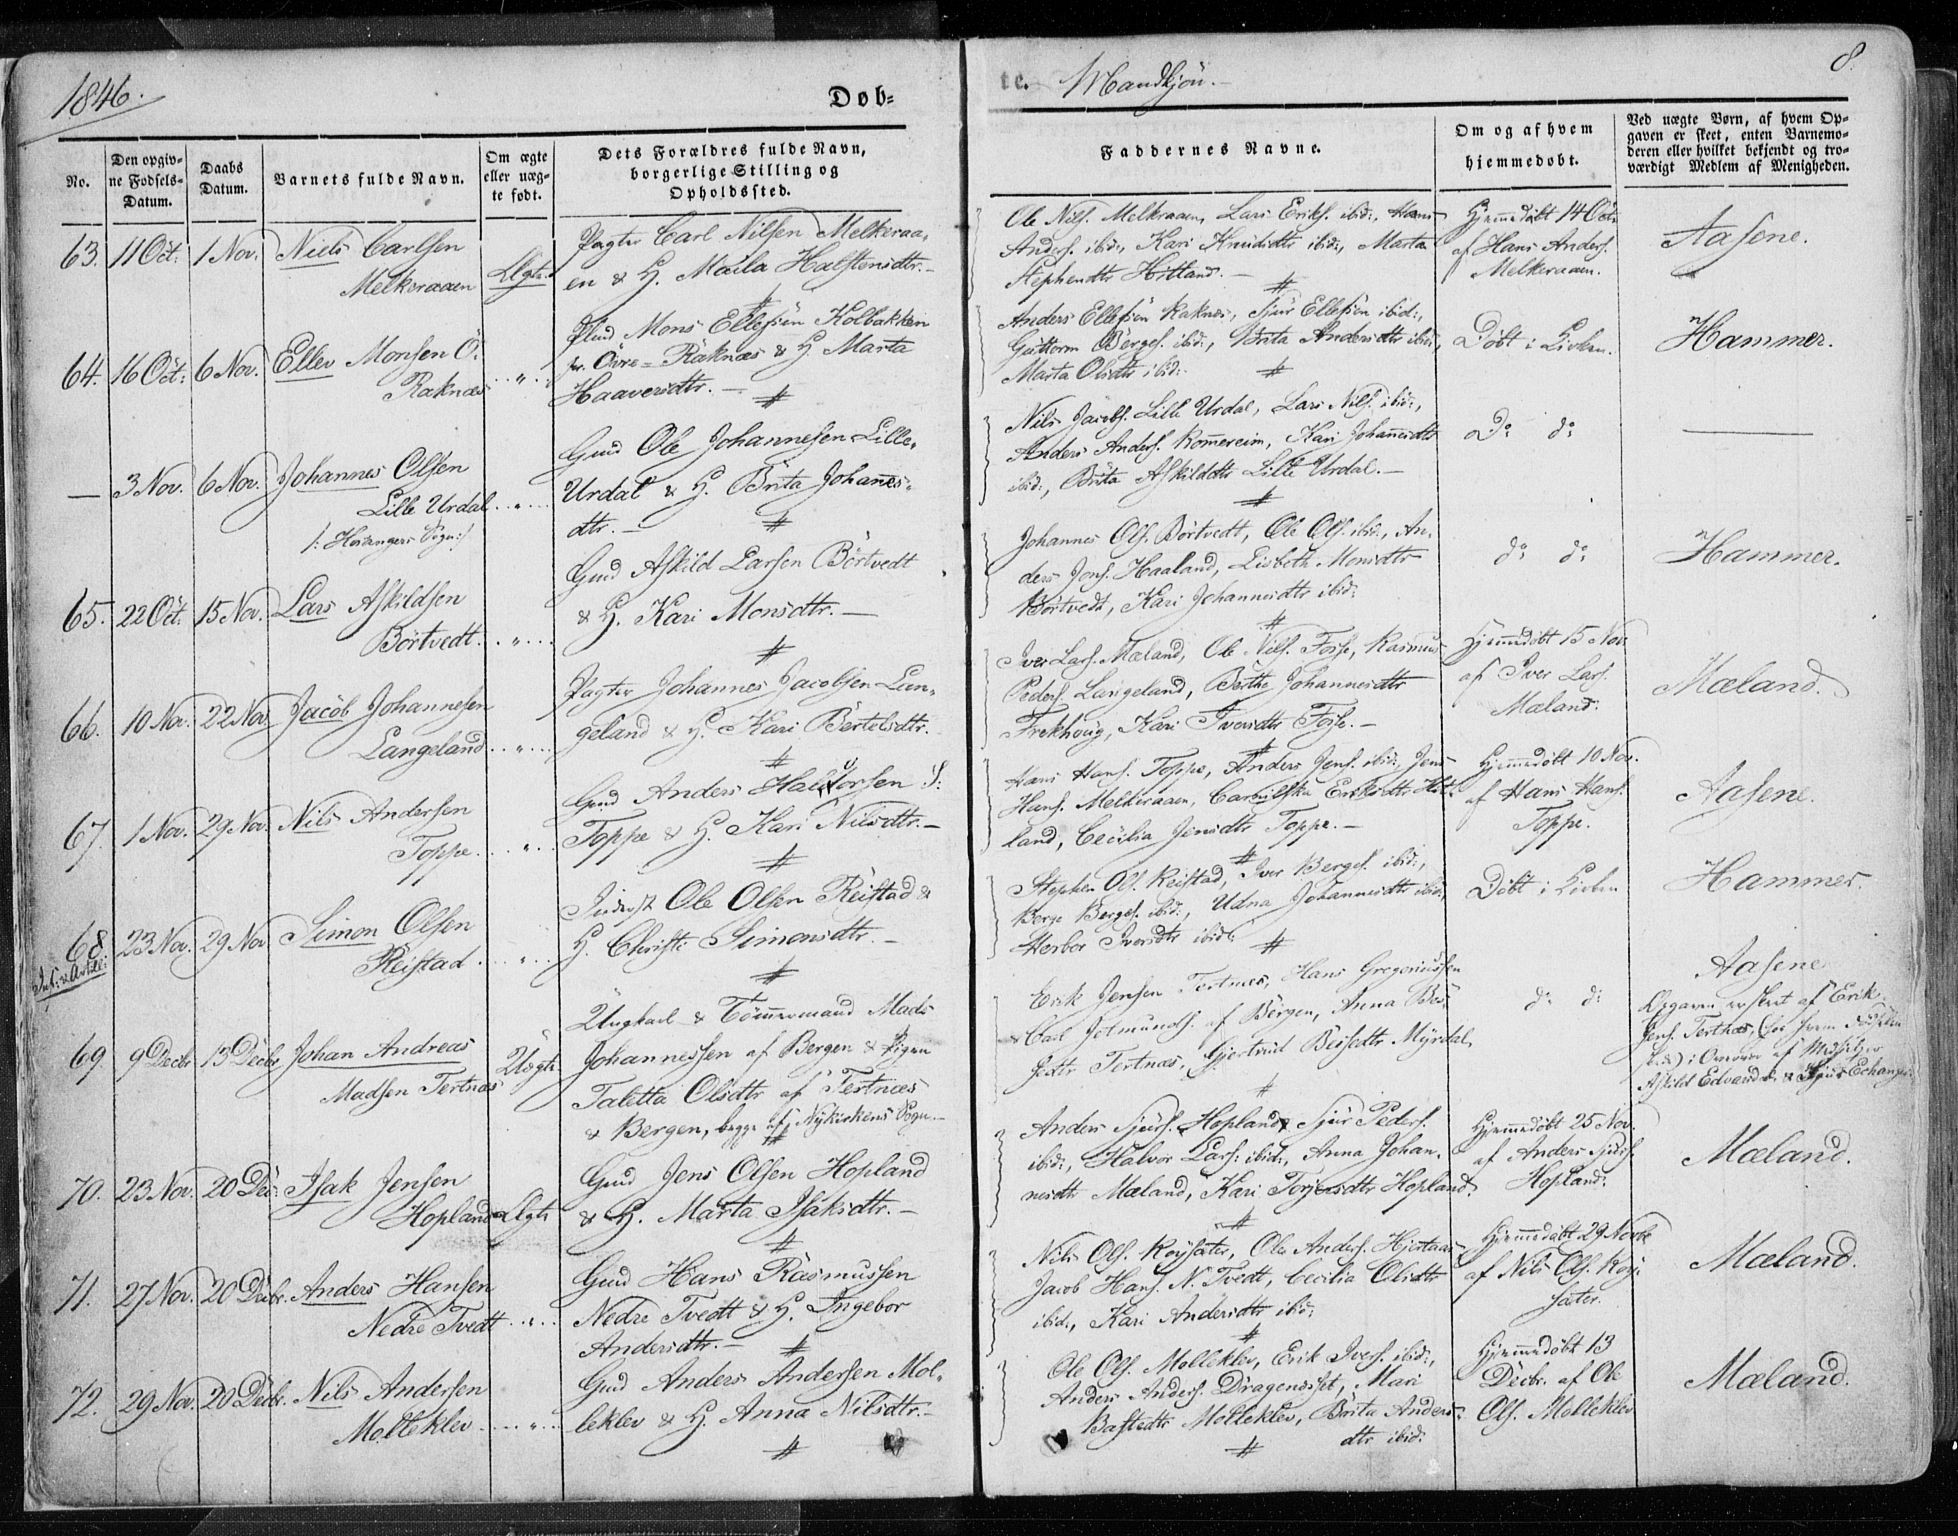 1846.
Døb=
te. Mandkjön.
8.
No.
Den opgiv=
ne Fødsels=
Datum.
Daabs
Datum.
Barnets fulde Navn.
Om ægte
eller uæg=
te født.
Dets Forældres fulde Navn,
borgerlige Stilling og
Opholdssted.
Faddernes Navne.
Om og af hvem
hjemmedøbt.
Ved uægte Børn, af hvem Op=
gaven er skeet, enten Barnemo=
deren eller hvilket bekjendt og tro=
værdigt Medlem af Menigheden.
63. 11 Oct: 1 Nov. Niels Carlsen
Melkeraaen
Ægte
Pagter Carl Nilsen Melkeraa=
en & H. Halstensdtr.
Ole Nils. Melkraaen, Lars Eriks. ibid:, Hans
Anders. ibid:, Kari Knudsdtr ibid:, Marta
Stephensdtr Hitland.
Hjemmedöbt 14 Oct:
af Hans Anders.
Melkeraaen.
Aasene.
64. 16 Oct: 6 Nov. Ellev Monsen Ö.
Raknæs
Mons Ellefsen Kolbakken
Övre-Raknæs & H. Marta
Haaversdtr.
Anders Ellefsen Raknæs, Sjur Ellefsen ibid:,
Guttorm Börges. ibid:, Brita Andersdtr ibid:,
Marta Olsdtr ibid:
Döbt i Kirken.
Hammer.
— 3 Nov. 6 Nov. Johannes Olsen
Lille Urdal
/: Hosanger Sogn :/
Gmd Ole Johannesen Lille=
Urdal & H. Brita Johannes=
dtr.
Nils Jacobs. Lille Urdal, Lars Nils. ibid:,
Anders Anders. Romereim, Kari Johannesdtr
ibid:, Brita Askildsdtr Lille Urdal.
Do do
65. 22 Oct. 15 Nov. Lars Askildsen
Börtvedt.
Gmd Askild Larsen Börtvedt
& H. Kari Monsdtr.
Johannes Ols. Börtvedt, Ole Ols. ibid:, An=
ders Jons. Haaland, Lisbeth Monsdtr
Börtvedt, Kari Johannesdtr ibid:
do do
Hammer.
66. 10 Nov. 22 Nov. Jacob Johannesen
Langeland
Pagter Johannes Jacobsen Lan=
geland & H. Kari Bertelsdtr.
Iver Lars. Mæland, Ole Nils. Fosse, Rasmus
Peders. Langeland, Berthe Johannesdtr
Frekhoug, Kari Iversdtr Fosse.
Hjemmedöbt 15 Nov.
af Iver Lars.
Mæland.
Mæland.
67. 1 Nov. 29 Nov. Nils Andersen
Toppe.
Gmd Anders Haldorsen S:
Toppe & H. Kari Nilsdtr.
Hans Hans. Toppe, Anders Jens. ibid:, Jens
Hans. Melkeraaen, Eriksdtr Hit=
land, Cecilia Jensdtr Toppe.
Hjemmedöbt 10 Nov.
af Hans Hans.
Toppe.
Aasene.
68. 23 Nov. 29 Nov. Simon Olsen
Reistad
Inderst Ole Olsen Reistad &
H. Christi Simonsdtr.
Stephen Ols. Reistad, Iver Berges. ibid:,
Berge Berges. ibid:, Udna Johannesdtr ibid:,
Herbor Iversdtr ibid:
Döbt i Kirken
Hammer.
69. 9 Decbr 13 Decbr Johan Andreas
Madsen Tertnæs
Uægte
Ungkarl & Tömmermand Mads
Johannessen af Bergen & Pigen
Taletta Olsdtr af Tertnæs
& Bergen, begge af Nykirkens Sogn.
Erik Jensen Tertnæs, Hans Gregoriussen
& Carl Jetmunds. af Bergen, Anna
Tertnæs, Gjertrud Myrdal.
do do
Aasene
Opgaven er skeet af Erik
Jens. Tertnæs, (hos hvem Födselen
70. 23 Nov. 20 Dec: Isak Jensen
Hopland
Ægte
Gmd Jens Olsen Hopland
& H. Marta Isaksdtr.
Anders Sjurs. Hopland, Sjur Peders.
ibid:, Halvor Lars. ibid:, Anna Johan=
nesdtr Mæland, Kari Torjersdtr Hopland.
Hjemmedöbt 25 Nov.
af Anders Sjurs.
Hopland.
Mæland.
71. 27 Nov. 20 Decbr. Anders Hansen
Nedre Tvedt
Gmd Hans Rasmussen
Nedre Tvedt & H. Ingebor
Andersdtr.
Nils Ols. Röysæter, Ole Anders. Hjertaas
Jacob Hans. N. Tvedt, Cecilia Olsdtr
ibid:, Kari Andersdtr ibid:
Hjemmedöbt 29 Novbr
af Nils Ols. Röy=
sæter.
Mæland.
72. 29 Nov. 20 Decbr. Nils Andersen
Mölleklev
Gmd Anders Andersen Möl=
leklev & H. Anna Nilsdtr.
Ole Ols. Mölleklev, Erik Ivers. ibid:,
Anders Anders. Dragenæsset, Mari
Mölleklev, Brita Anders=
dtr ibid:
Hjemmedöbt 13
Decbr. af Ole
Ols. Mölleklev
Mæland.